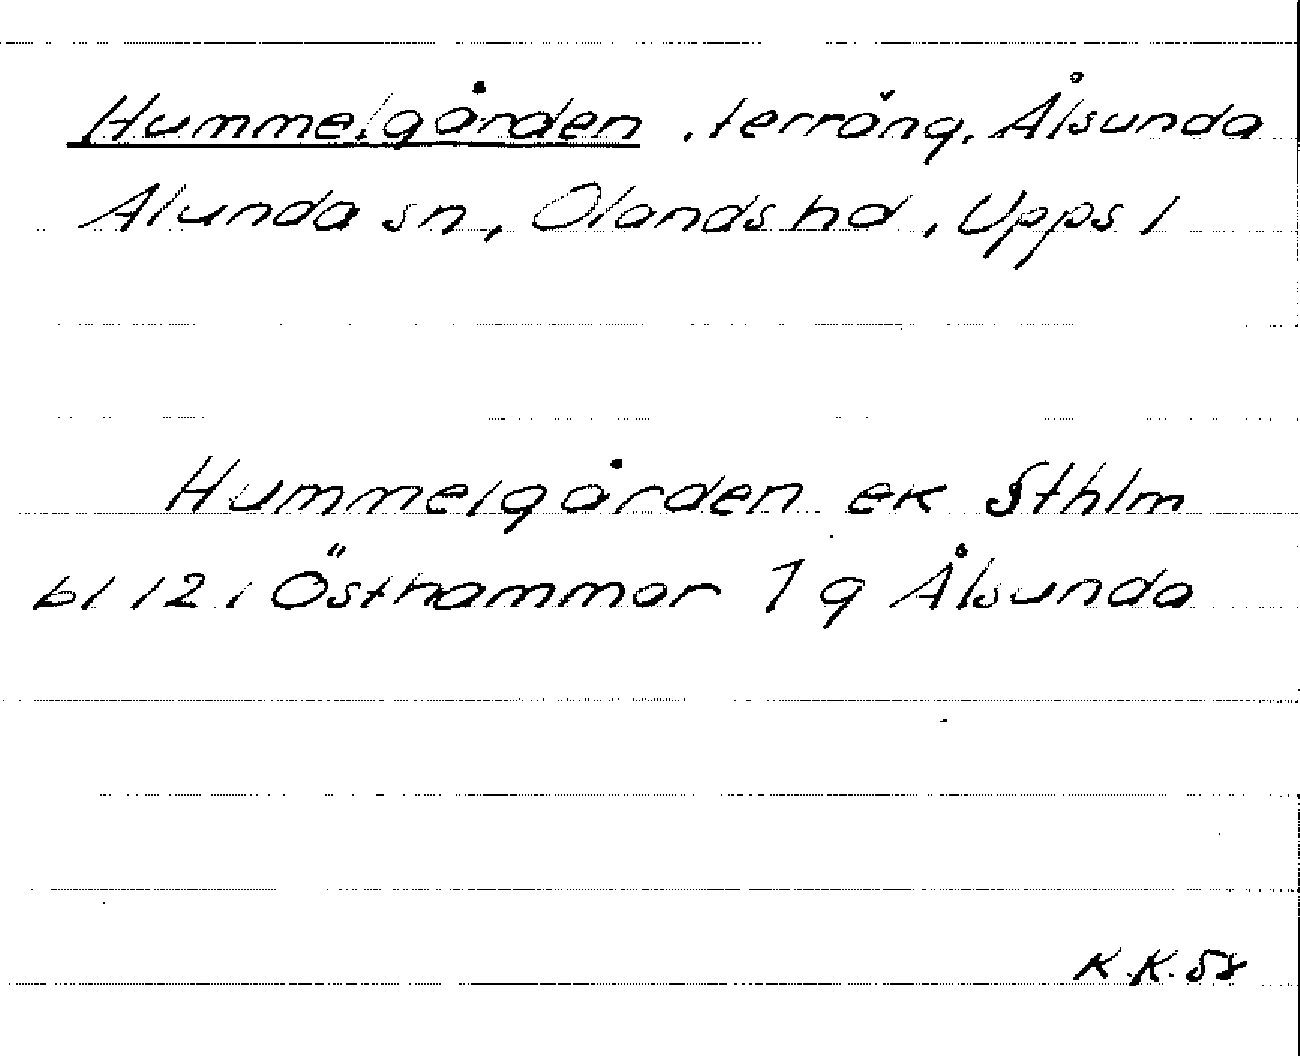 Hummelgården, terräng, Ålsunda
Alunda sn, Olands hd, Upps l
Hummelgården ek Sthlm
bl 121 Östhammar 7 g Ålsunda
K.K. 58